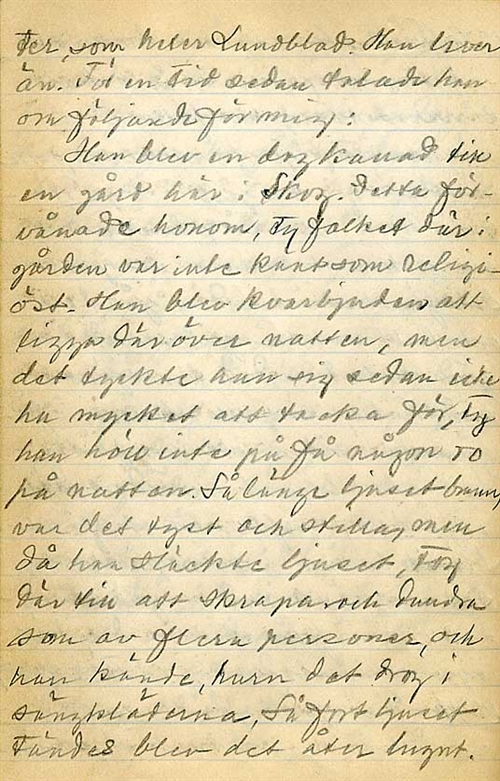 ter, som heter Lundblad. Han lever
än. För en tid sedan talade han
om följande för mig:
Han blev en dag kallad till
en gård här i Skog. Detta för-
vånade honom, ty folket där i
gården var inte känt som religi-
öst. Han blev kvarbjuden att
ligga där över natten, men
det tyckte han sig sedan icke
ha mycket att tacka för, ty
han höll inte på få någon ro
på natten. Så länge ljuset brann,
var det tyst och stilla, men
då han släckte ljuset, tog
där till att skrapa och dundra
som av flera personer, och
han kände, huru det drog i
sängkläderna, Så fort ljuset
tändes blev det åter lugnt.